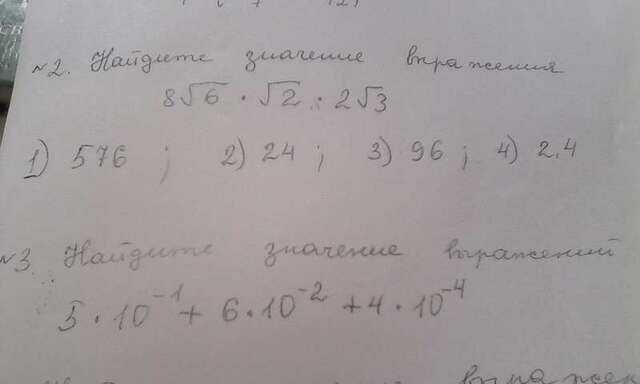 №2. Найдите значение выражения
8√6 · √2 : 2√3
1) 576 ; 2) 24 ; 3) 96 ; 4) 2,4
№3. Найдите значение выражений
5·10⁻¹ + 6·10⁻² + 4·10⁻⁴